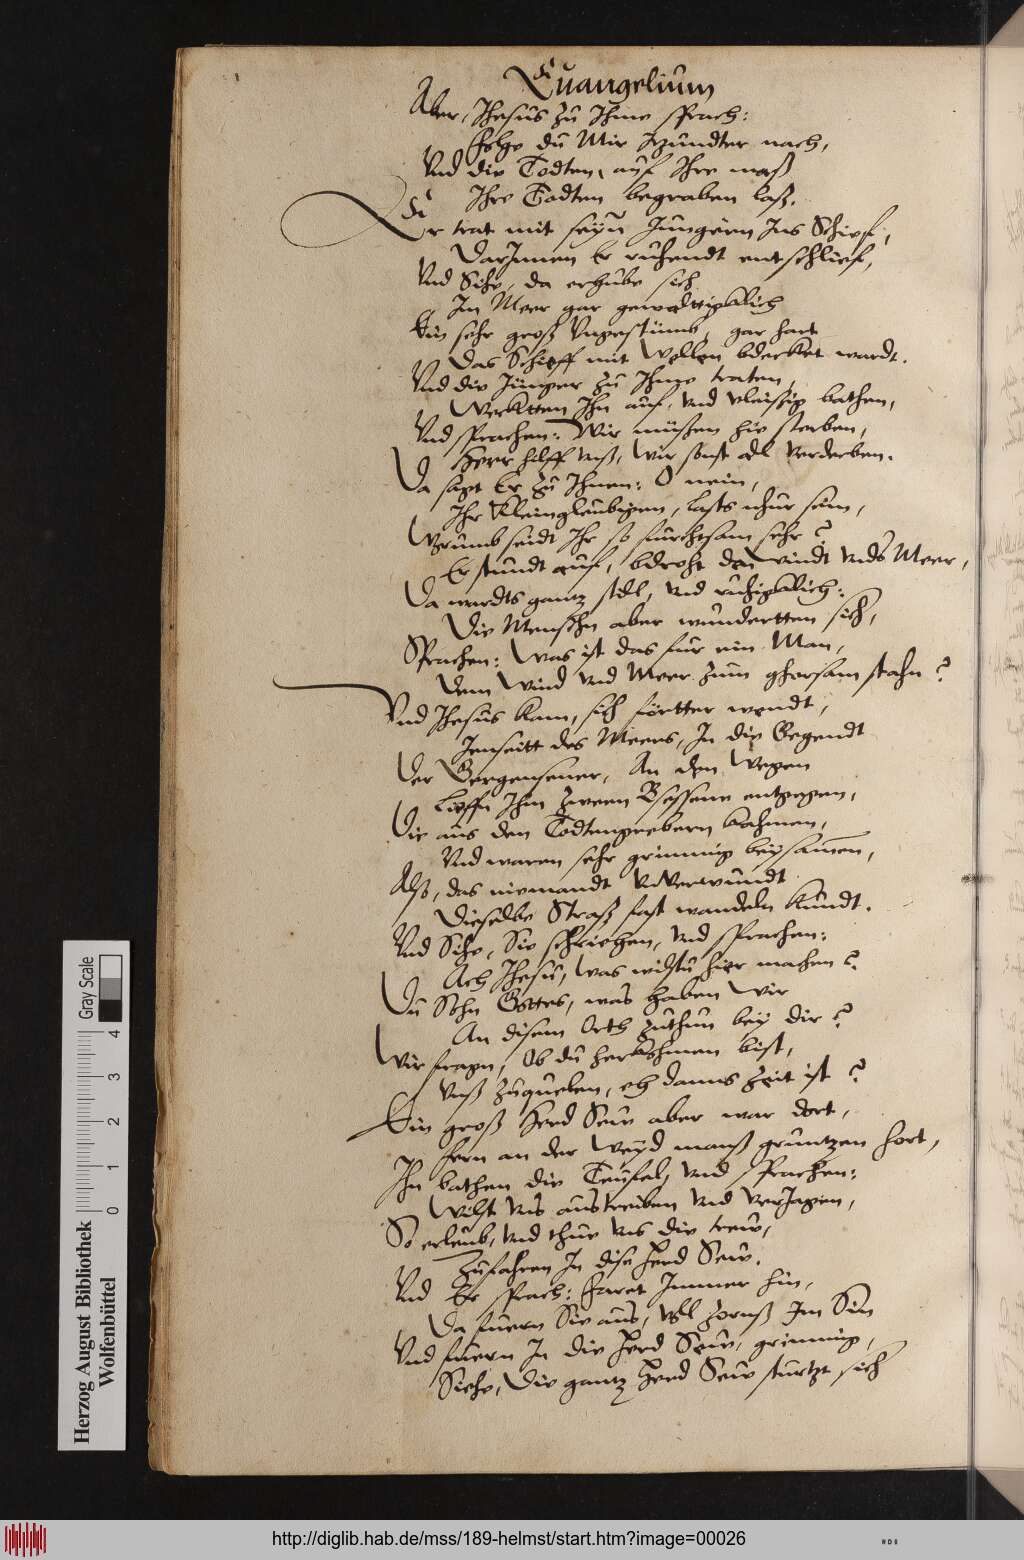 Euangelium
Aber, Jhesus zu Jhme sprach:
Folge du Mir Jtzundter nach,
Vnd die Todten, auf Jhre maß
Jhre Todten begraben laß.
Er trat mit seyn Jungern Jns Schieff,
DarJnnen Er ruhendt entschlieff,
Vnd Sihe, da erhube sich
Jm Meer gar gewaltigklich
Ein sehr groß Vngestümb, gar hart
Das Schieff mit Wellen bdecket wardt.
Vnd die Jünger zu Jhme traten,
Weckten Jhn auf, vnd vleissig bathen,
Vnd sprachen: Wir müssen hie sterben,
Herr hilff vnß, Wir sonst all verderben.
Da sagt Er zu Jhnen: O nein,
Jhr Kleingleubigen, lasts nhur sein,
Warumb seidt Jhr so furchtsam sehr?
Er stundt auf, bdroht den Windt vnds Meer,
Da wurdts gantz still, vnd ruhigklich:
Die Menschn aber wundertten sich,
Sprachen: Was ist das fur ein Man,
Dem Wind vnd Meer zum ghorsam stahn?
Vnd Jhesus kam, sich förtter wendt,
Jenseitt des Meers, Jn die Gegendt
Der Gergensener, An den Wegen
Lieffn Jhm zween Bsessene entgegen,
Die aus den Todtengrebern kahmen,
Vnd waren sehr grimmig beysamen,
Alß, das niemandt vnverwundt
Dieselbe Straß fast wandeln kundt.
Vnd Sihe, Sie schriehen, vnd sprachen:
Ach Jhesu, Was wilstu hier machen?
Du Sohn Gottes, was haben Wir
An disem Orth zuthun bey dir?
Wir fragn, Ob du herkohmen bist,
Vnß zuquelen, eh danns Zeit ist?
Ein groß Herd Sew aber war dort,
Fern an der Weyd manß gruntzen hort,
Jhn bathen die Teufel, vnd sprachen:
Wilst vns austreiben vnd verJagen,
So erleub, vnd thue vns die trew,
Zufahren Jn dise Herd Sew.
Vnd Er sprach: Farat Jmmer hin,
Da fuern Sie aus, voll zornß Jm Sin
Vnd fuern Jn die Herd Sew, grimmig,
Siehe, Die gantz Herd Sew sturtzt sich
Gray Scale
0 1 2 3 4
Herzog August Bibliothek
Wolfenbüttel
http://diglib.hab.de/mss/189-helmst/start.htm?image=00026